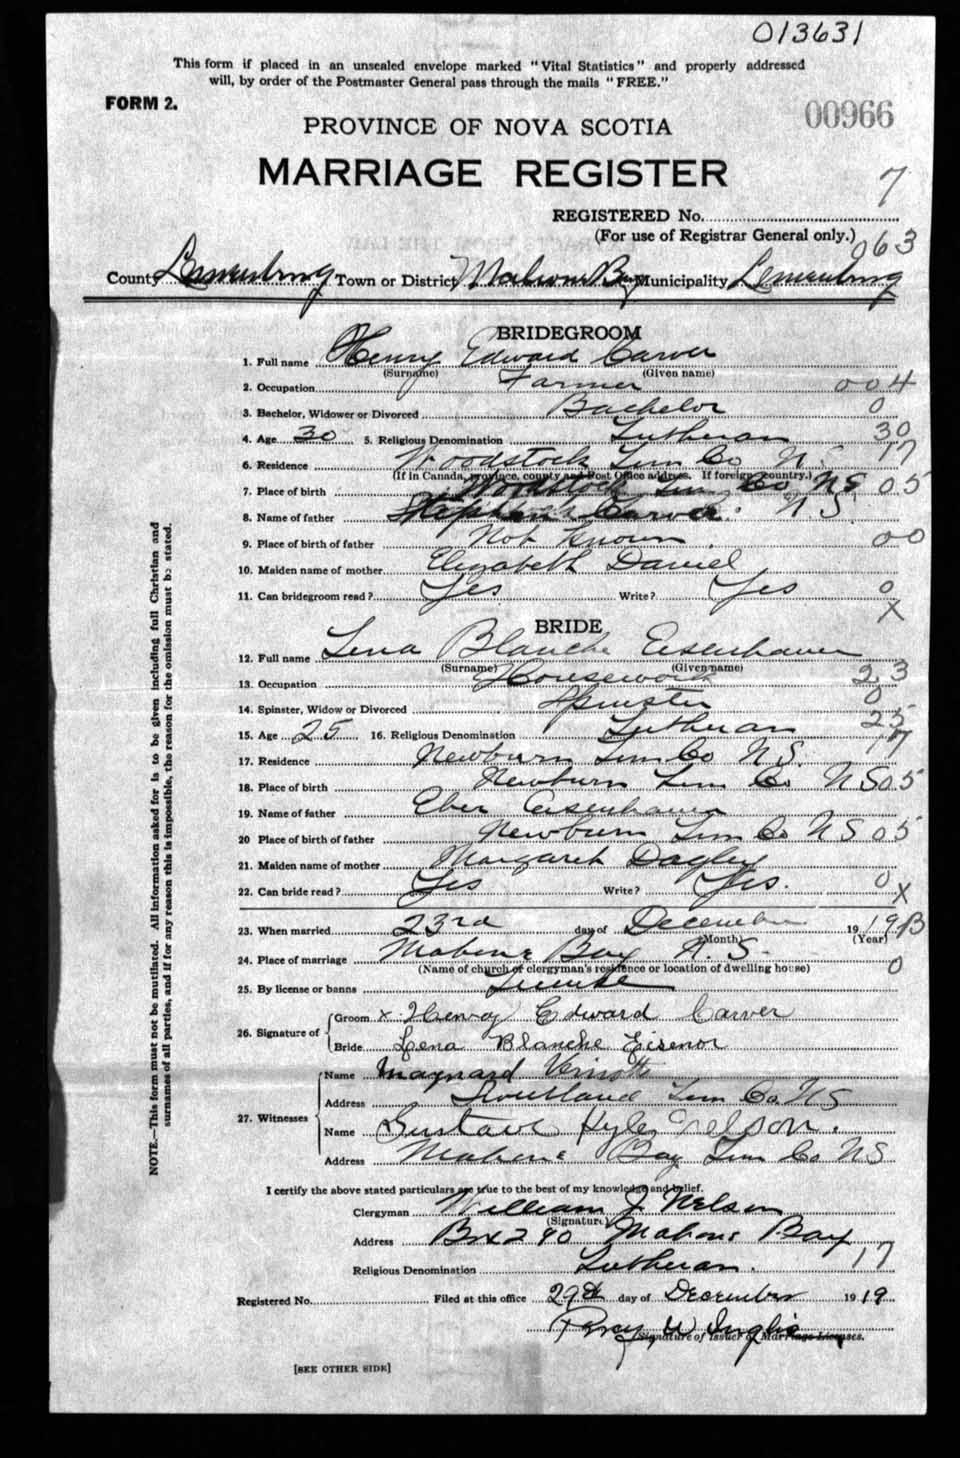 013631
This form if placed in an unsealed envelope marked "Vital Statistics" and properly addressed
will, by order of the Postmaster General pass through the mails "FREE."
FORM 2.
00966
PROVINCE OF NOVA SCOTIA
MARRIAGE REGISTER
7
REGISTERED No.
(For use of Registrar General only.) 063
County Lunenburg Town or District Mahone Bay Municipality Lunenburg
BRIDEGROOM
1. Full name Henry Edward Carver
(Surname) (Given name)
2. Occupation Farmer 004
3. Bachelor, Widower or Divorced Bachelor 0
4. Age 30 5. Religious Denomination Lutheran 30
6. Residence Woodstock Lun Co N S 17
(If in Canada, province, county and Post Office address. If foreign, country.)
7. Place of birth Woodstock Lun Co N S 05
8. Name of father Stephen Carver N S
9. Place of birth of father Not Known 00
10. Maiden name of mother Elizabeth Daniel
11. Can bridegroom read? Yes Write? Yes 0
X
BRIDE
12. Full name Lena Blanche Eisenhauer
(Surname) (Given name)
13. Occupation Housework 23
14. Spinster, Widow or Divorced Spinster 0
15. Age 25 16. Religious Denomination Lutheran 25
17. Residence Newburn Lun Co N S. 17
18. Place of birth Newburn Lun Co N S 05
19. Name of father Eber Eisenhauer
20 Place of birth of father Newburn Lun Co N S 05
21. Maiden name of mother Margaret Dagley
22. Can bride read? Yes Write? Yes. 0
X
23. When married 23rd day of December 19 19
(Month) (Year)
24. Place of marriage Mahone Bay N. S. 0
(Name of church or clergyman's residence or location of dwelling house)
25. By license or banns License
26. Signature of Groom x Henry Edward Carver
Bride Lena Blanche Eisenor
27. Witnesses Name Maynard
Address Lun Co. N S
Name Gustave Kyle Nelson.
Address Mahone Bay Lun Co N S
I certify the above stated particulars are true to the best of my knowledge and belief.
Clergyman William J. Nelson
(Signature)
Address Box 290 Mahone Bay
Religious Denomination Lutheran. 17
Registered No. Filed at this office 29th day of December 19 19
Percy W Inglis
Signature of Issuer of Marriage Licenses.
[SEE OTHER SIDE]
NOTE.—This form must not be mutilated. All information asked for is to be given including full Christian and
surnames of all parties, and if for any reason this is impossible, the reason for the omission must be stated.